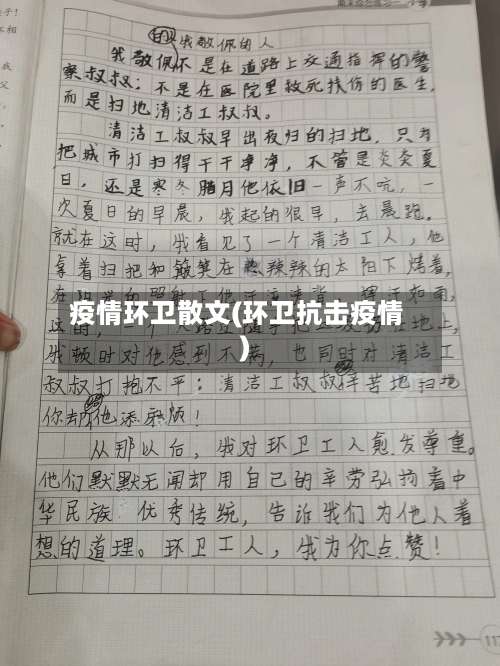 我敬佩的人
我敬佩不是在道路上交通指挥的警
察叔叔；不是在医院里救死扶伤的医生，
而是扫地清洁工叔叔。
清洁工叔叔早出夜归的扫地，只为
把城市打扫得干干净净，不管是炎炎夏
日，还是寒冬腊月他依旧一声不吭，一
次夏日的早晨，我起的很早，去晨跑。
就在这时，我看见了一个清洁工人，他
拿着扫把和簸箕在热辣辣的太阳下烤着，
疫情环卫散文(环卫抗击疫情
)
我顿时对他感到不满，也同时对清洁工
叔叔打抱不平：清洁工叔叔辛苦地扫地
你却他添麻烦！
从那以后，我对环卫工人愈发尊重。
他们默默无闻却用自己的辛劳弘扬着中
华民族 优秀传统，告诉我们为他人着
想的道理。环卫工人，我为你点赞！
117